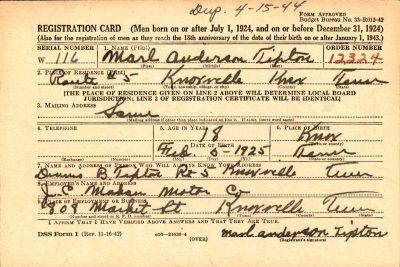 Dup. 4-15-44
FORM APPROVED
Budget Bureau No. 33-R012-42
REGISTRATION CARD (Men born on or after July 1, 1924, and on or before December 31, 1924)
(Also for the registration of men as they reach the 18th anniversary of the date of their birth on or after January 1, 1943.)
SERIAL NUMBER 1. NAME (Print) ORDER NUMBER
W 116 Marl Anderson Tipton 12324
(First) (Middle) (Last)
2. PLACE OF RESIDENCE (Print)
Route 5 Knoxville Knox Tenn
(Number and street) (Town, township, village, or city) (County) (State)
[THE PLACE OF RESIDENCE GIVEN ON LINE 2 ABOVE WILL DETERMINE LOCAL BOARD
JURISDICTION; LINE 2 OF REGISTRATION CERTIFICATE WILL BE IDENTICAL]
3. MAILING ADDRESS
Same
[Mailing address if other than place indicated on line 2. If same, insert word same]
4. TELEPHONE 5. AGE IN YEARS 6. PLACE OF BIRTH
18 Knox
DATE OF BIRTH
Feb 5 - 1925 Tenn
7. NAME AND ADDRESS OF PERSON WHO WILL ALWAYS KNOW YOUR ADDRESS
Dennis B. Tipton Rt 5 Knoxville Tenn
8. EMPLOYER'S NAME AND ADDRESS
Motor Co
9. PLACE OF EMPLOYMENT OR BUSINESS
808 Market St Knoxville Tenn
(Number and street or R. F. D. number) (Town) (County) (State)
I AFFIRM THAT I HAVE VERIFIED ABOVE ANSWERS AND THAT THEY ARE TRUE.
DSS Form 1 (Rev. 11-16-42) (OVER) Marl anderson Tipton
(Registrant's signature)